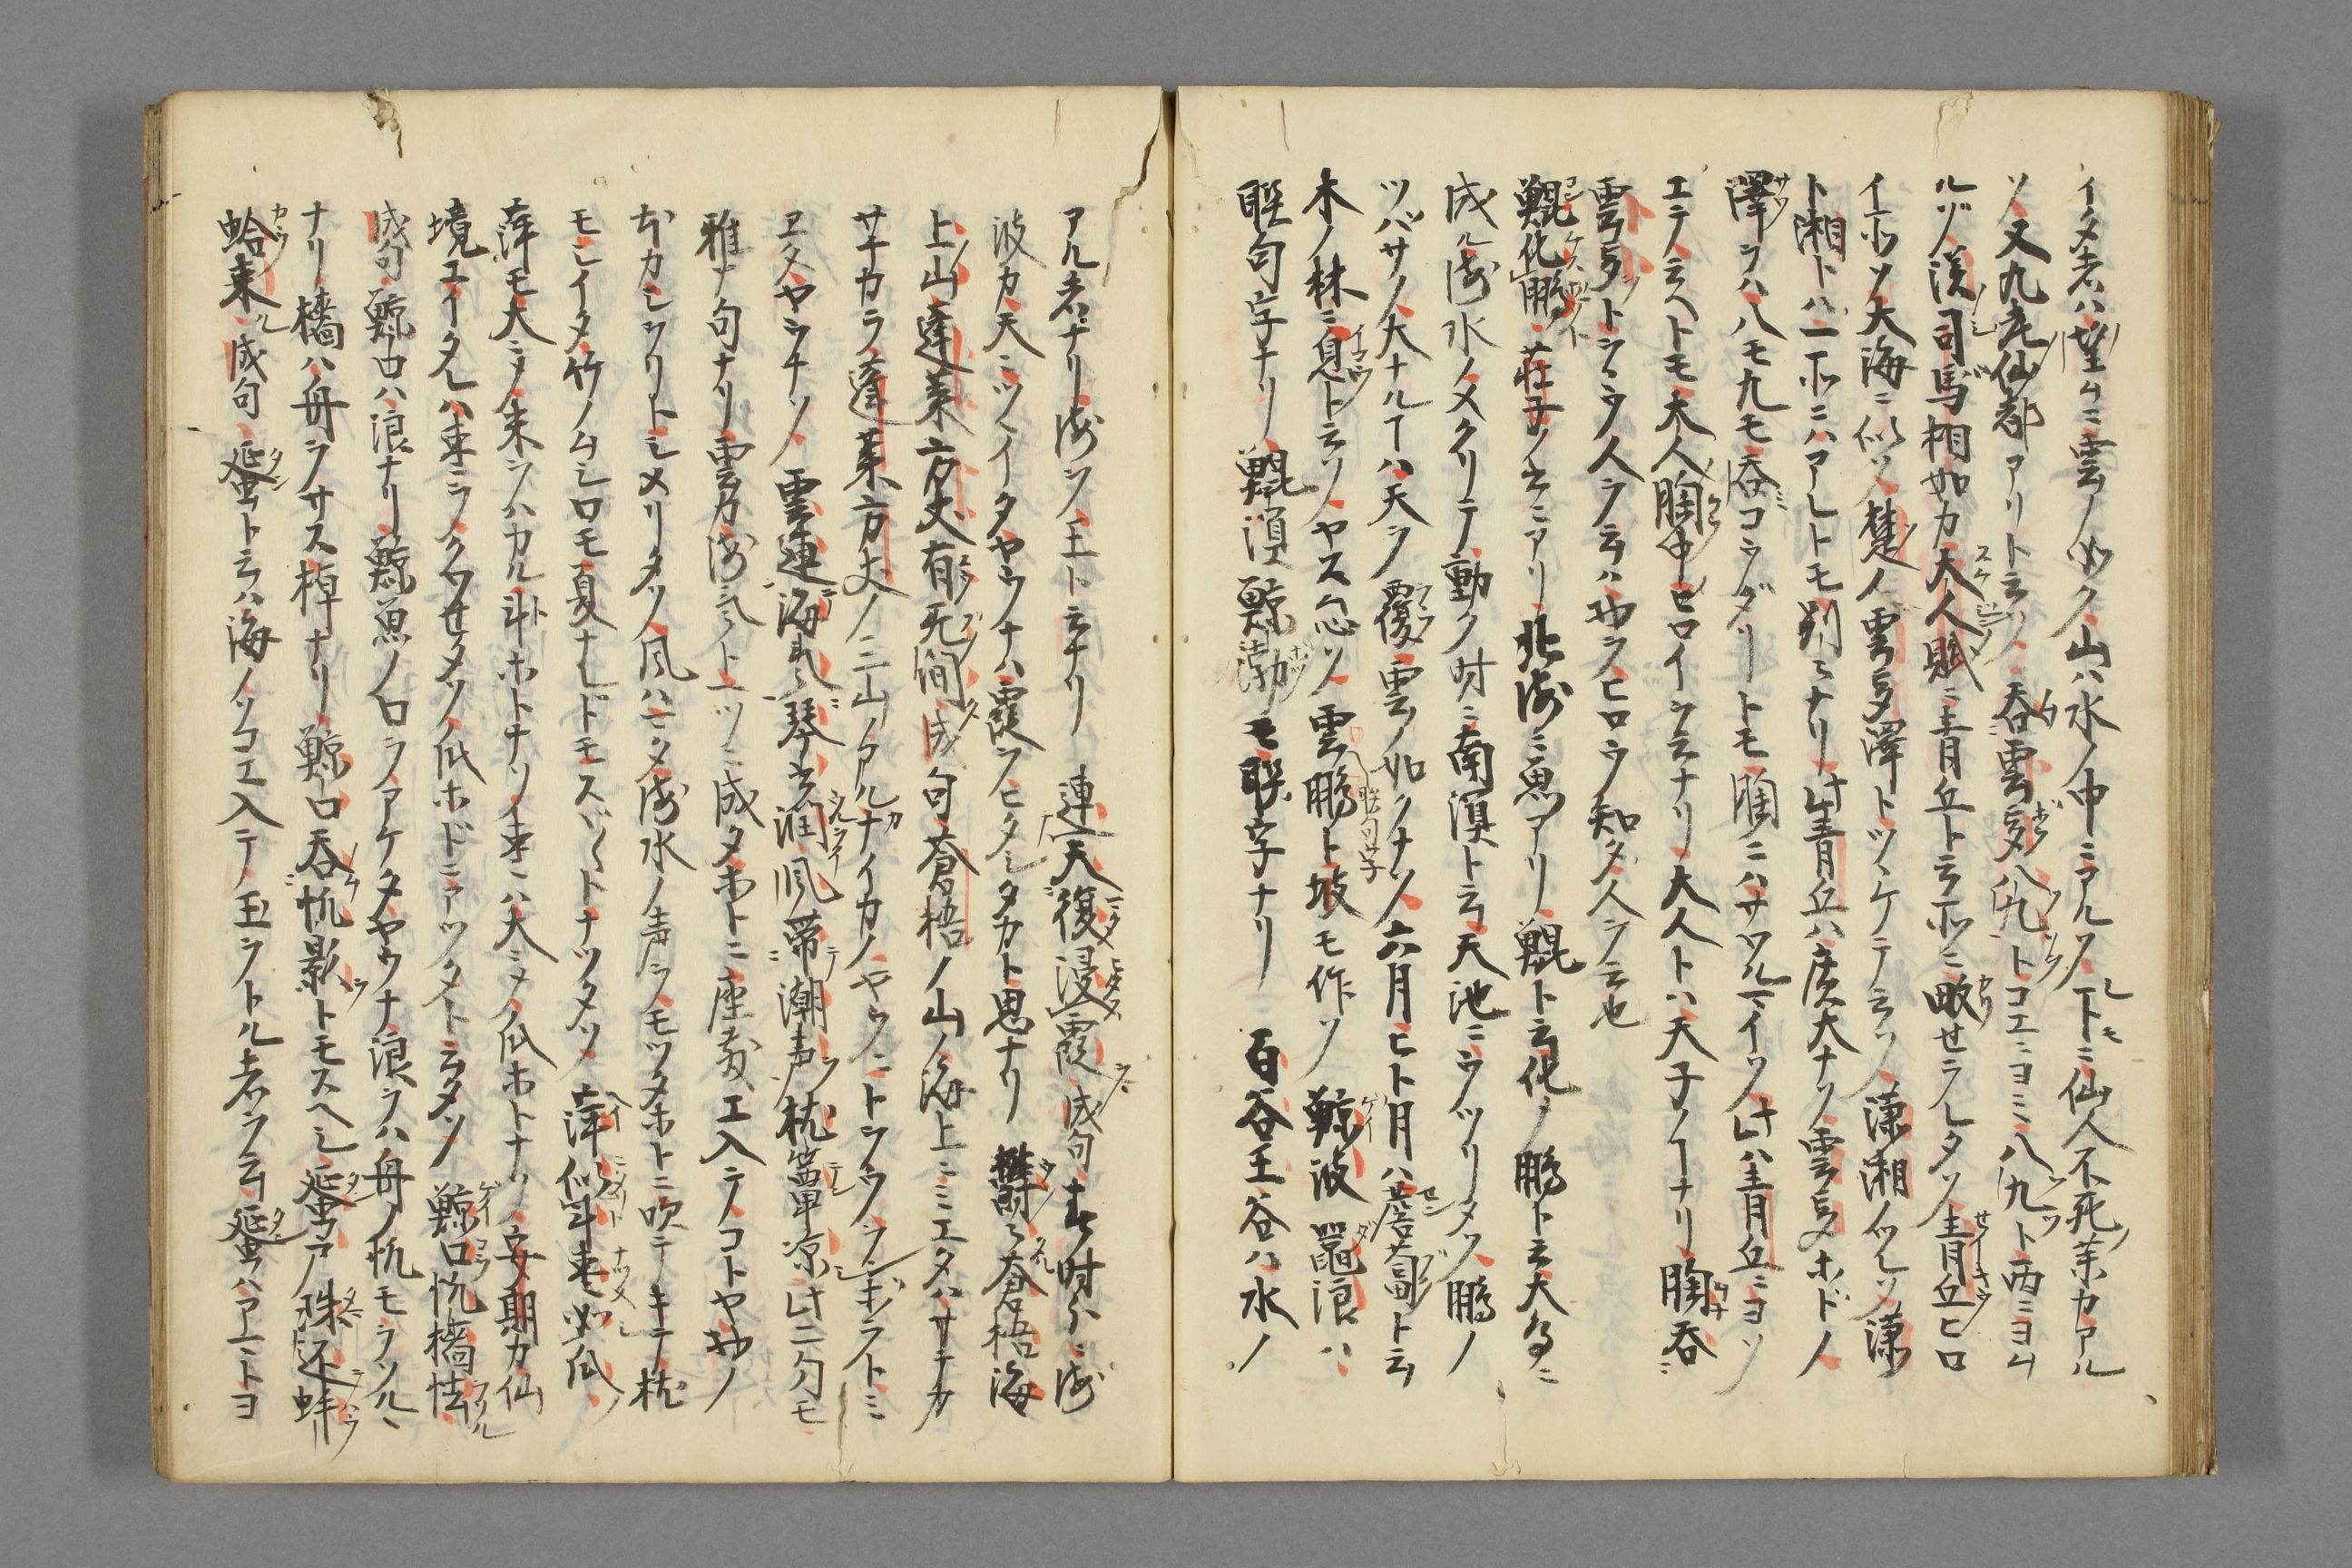 イタ者ハ望ムニ雲ノ如ク山ハ水ノ中ニアルソ下ニ仙人不死ノ薬カアル
ソ又九老仙都アリト云ソ呑雲夢八九トコエニヨミ八九ト両ニヨム
ルソ漢司馬相如カ大人賦ニ青丘ト云所ニ畋せラレタソ青丘ヒロ
イホソ大海ニ似ソ楚ノ雲夢澤トツヽケテ云ソ瀟湘イツレソ瀟
ト湘トハ一所ニハアレトモ別々ナリ此青丘ハ廣大ナソ雲夢ホドノ
澤ヲハ八モ九モ呑コウダリトモ胸ニハサツル一イソ此ハ青丘ニヨソ
エテ云ヘトモ大人胸中ヒロイヲ云ナリ大人トハ天子ノ事ナリ胸呑
雲夢トシウ人ヲ云ハ物ヲヒロウ知タ人ヲ云也
鯤化鵬荘子ノ云ニアリ北海ニ魚アリ鯤ト云化メ鵬ト云大鳥ニ
成ル海水ノメクリテ動ク時ニ南溟ト云天池ニウツリタソ鵬ノ
ツバサノ大ナル事ハ天ヲ覆雲ノ如クナソ六月ヒト月ハ薝蔔ト云
木ノ林ニ息ト云ソヤス心ソ雲鵬ト坡モ作ソ鯨波鼉浪ハ
聯句字ナリ鯤溟鯨渤モ聯字ナリ百谷王谷ハ水ノ
アル者ナリ海ヲ王ト云ナリ連天復浸霞成句春時分ニ海
波カ天ニツヽイタヤウナハ霞ヲヒタシタカト思ナリ鬱々蒼梧海
上山蓬莱方丈有無間成句蒼梧ノ山ノ海上ニミエタハサテカ
サテカラ蓬莱方丈ノ二山ノアルナイカノヤウニトヲウヲボラトミ
ヱタヤウナソ雲連海氣琴書潤風帯潮声枕簟凉此二句モ
雅ナ句ナリ雲カ海氣ト一ツニ成タホトニ座敷エ入テノコトヤ物ノ
本カシツリトシメリタソ風ハ亦タ海水ノ声ヲモツタホトニ吹テキテ枕
モシイタ竹ノムシロモ夏ナレドモスヾヾトナツタソ萍似斗棗如瓜
萍モ大ニメ朱ヲハカル斗ホトナソ棗ハ大ニメ瓜ホトナソ安期カ仙
境エイタレハ棗ヲクワせタソ瓜ホドニアツタト云タソ鯨口忱檣怯
成句鯨口ハ浪ナリ鯨魚ノ口ヲアケタヤウナ浪ヲハ舟ノ忱モヲソルヽ
ナリ檣ハ舟ヲサス棹ナリ鯨口呑忱影トモスヘシ蜑戸珠还蚌
蛤来成句蜑ト云ハ海ノソコエ入テ玉ヲトル者ヲ云蜑ハアマトヨ